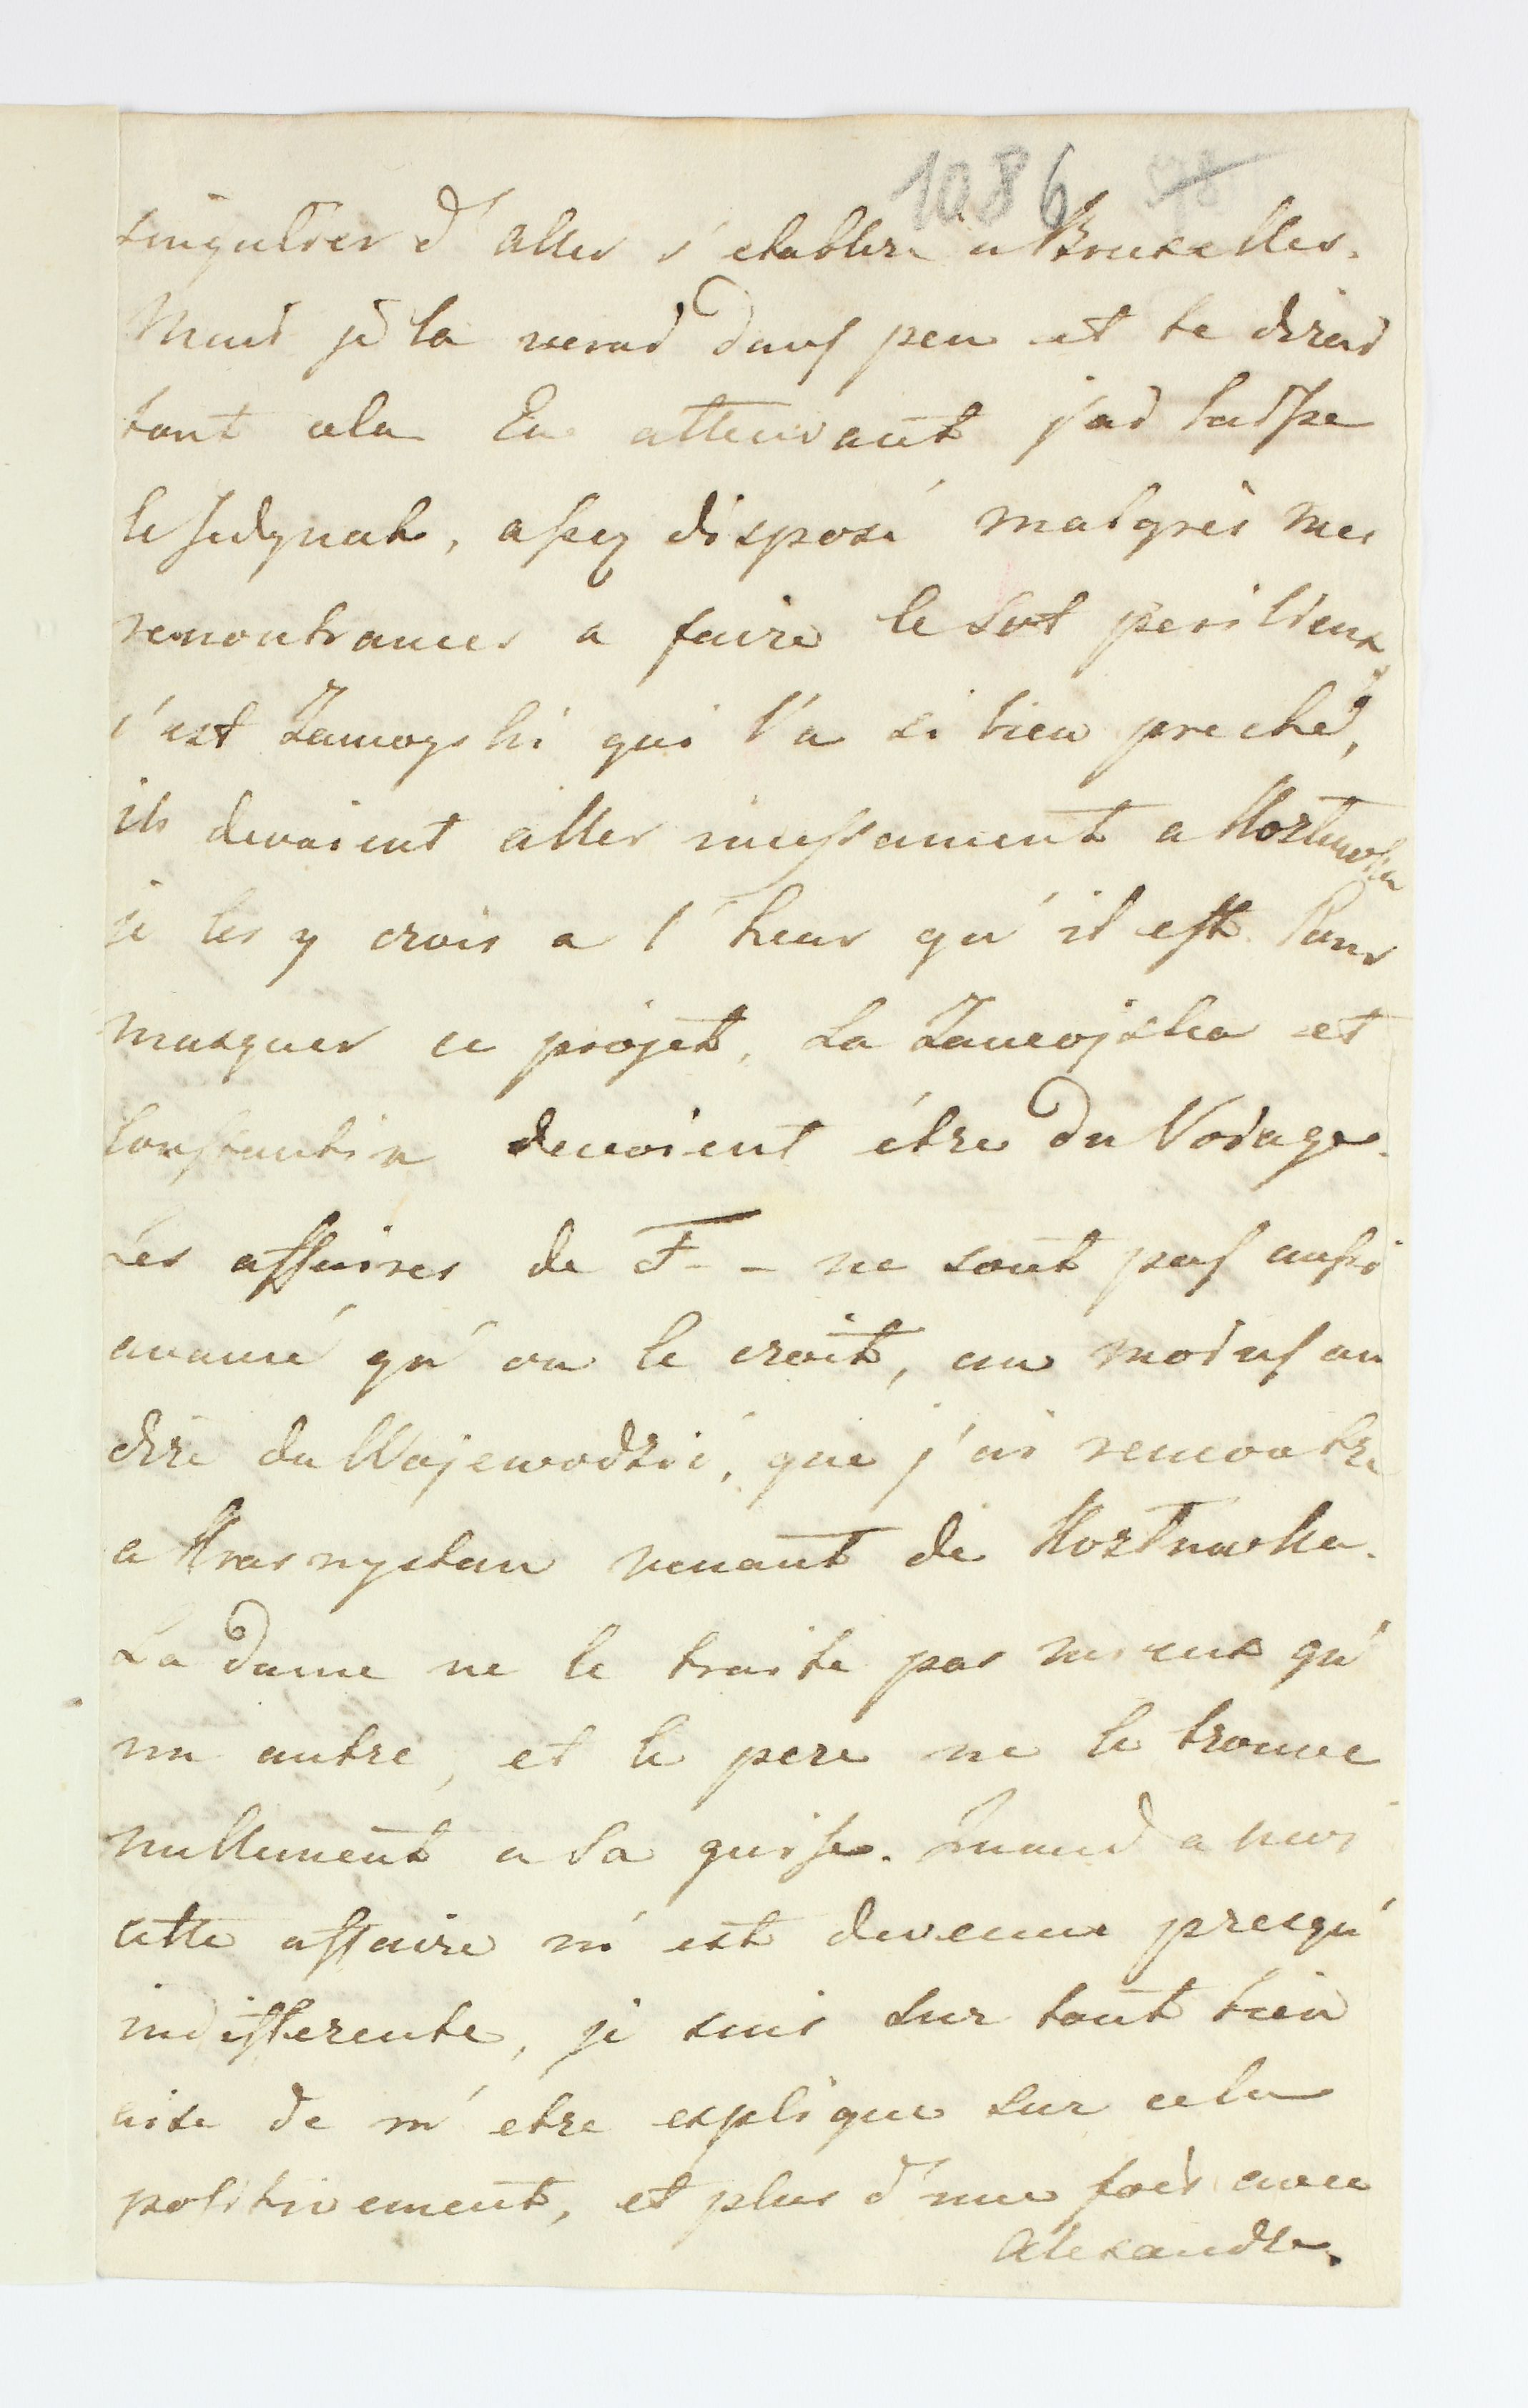 1086 78
singulier d'aller s'etablir a Bruxelles.
Mais je la verai dans peu et te dirai
tout cela En attendant j'ai laissé
le , assez disposé malgrès mes
remontrances a faire le sot perilieux,
c'est Zamoyski qui l'a si bien preché,
ils devaient aller incessament a Kostrawka
je les y crois a l'heur qu'il est. Pour
masquer ce projet, La Zamojska et
Constantin devoient être du Voiage.
Les affaires de F-- ne sont pas aussi
avancé qu'on le croit, au moins au
dire du Wojewodzić, que j'ai rencontre
a Krasnystaw venant de Kostrawka.
La dame ne le traite pas mieux qu'
un autre, et le pere ne le trouve
nullement a sa guise. Quand a moi
cette affaire m'est devenue presqu'
indifferente, je suis sur tout bien
aise de m'etre explique sur cela
positivement, et plus d'une fois avec
Alexandre.